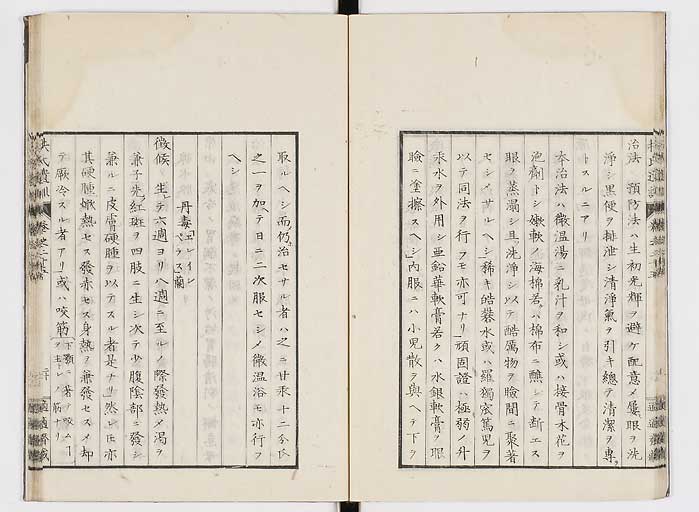 治法 預防法ハ生初光輝ヲ避ケ配意メ屢眼ヲ洗
浄シ黒便ヲ排泄シ清浄氣ヲ引キ總テ清潔ヲ専
トスルニアリ
奉治法ハ微温湯ニ乳汁ヲ和シ或ハ接骨木花ヲ
泡劑トシ嫩軟ノ海棉若ハ棉布ニ蘸シテ断エス
眼ヲ蒸溻シ且洗浄シ以テ酷厲物ヲ瞼間ニ聚著
セシメサルヘシ稀キ皓礬水或ハ羅獨宏篤児ヲ
以テ同法ヲ行フモ亦可ナリ頑固證ハ極弱ノ升
汞水ヲ外用シ亜鉛華軟膏若クハ水銀軟膏ヲ眼
瞼ニ塗擦スヘシ内服ニハ小児散ヲ與ヘテ下ヲ
取ルヘシ而仍治セサル者ハ之ニ甘汞十二分氏
之一ヲ加テ日ニ二次服セシメ微温浴モ亦行フ
ヘシ
丹毒
徴候 生テ六週ヨリ八週ニ至ルノ際發熱メ渇ヲ
兼子先紅斑ヲ四肢ニ生シ次テ少腹陰部ニ發シ
兼ルニ皮膚硬腫ヲ以テスル者是ナリ然ヒ亦
其硬腫嫩熱セス發赤セス身熱ヲ兼發セスメ却
テ厥冷スル者アリ或ハ咬筋